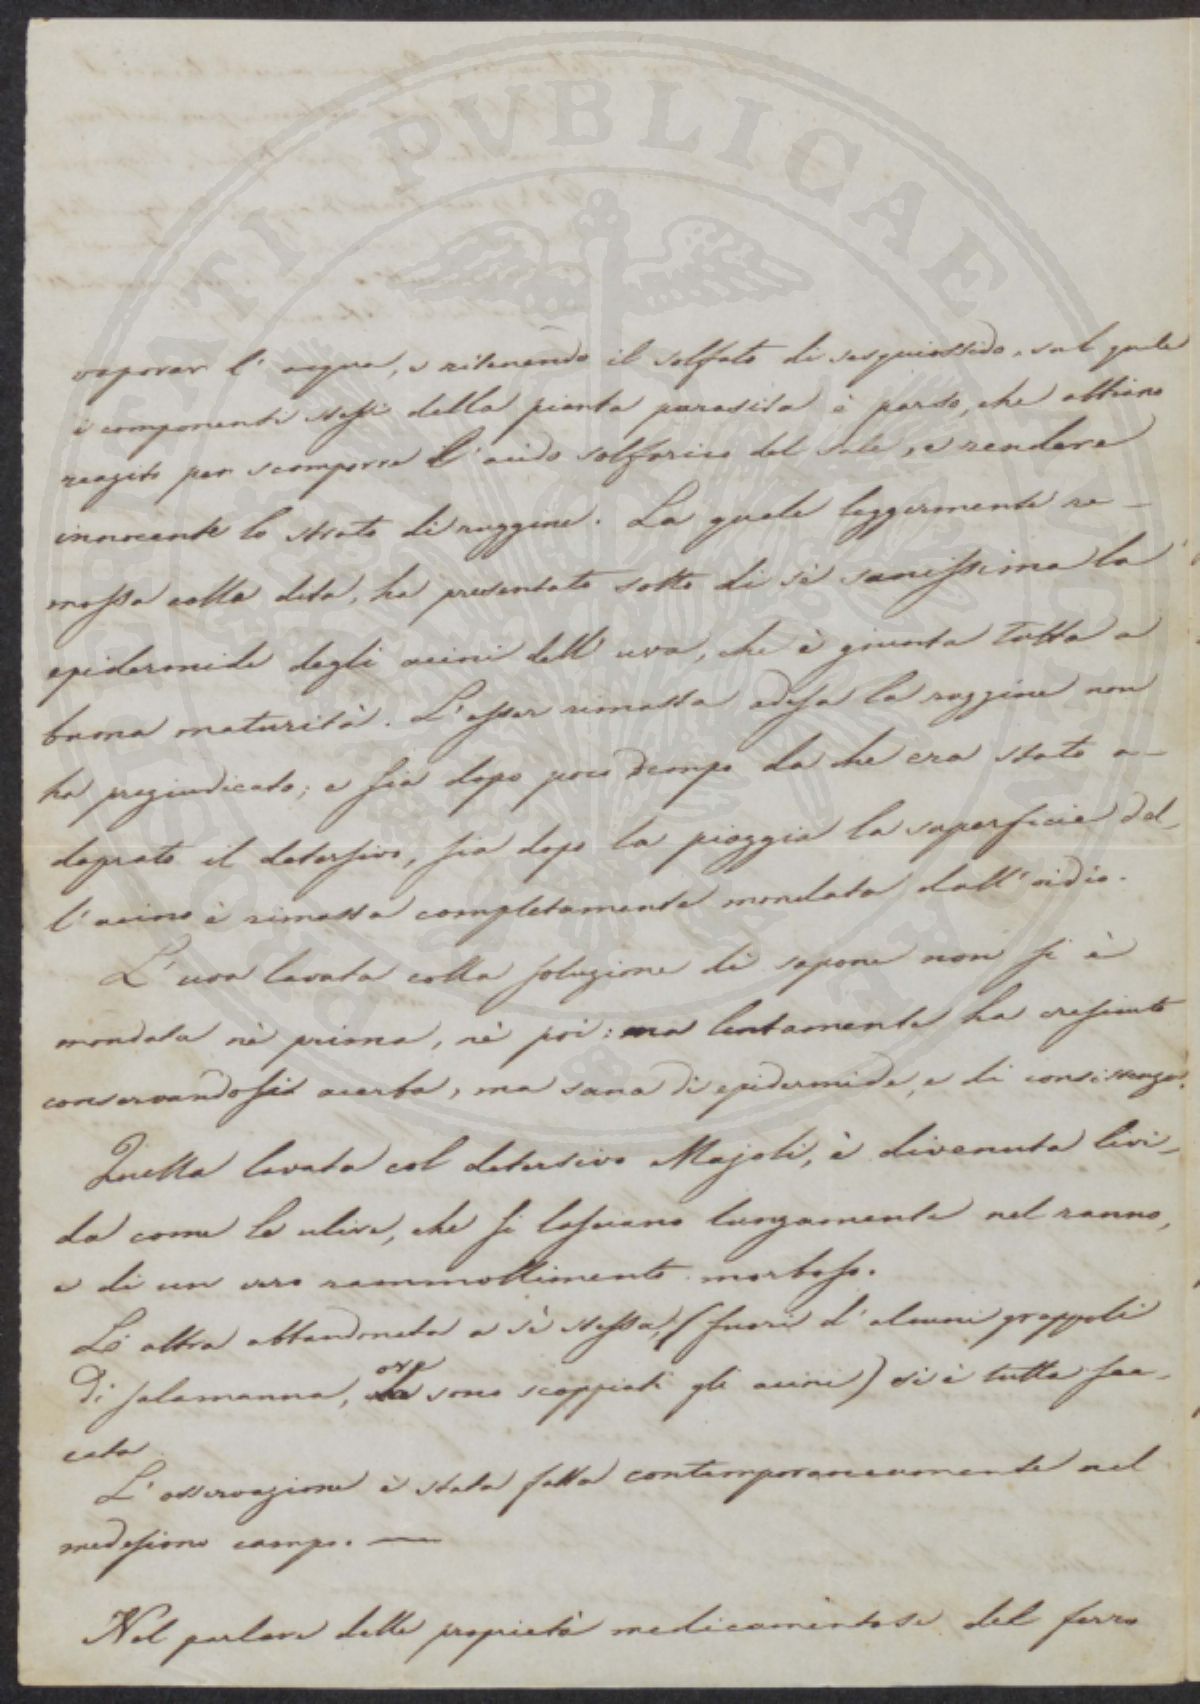 PROSPERITATI PUBLICAE AUGENDAE
vaporar l'acqua, e ritenendo il solfato di sesquiossido, sul quale
i componenti stessi della pianta parassita è parso, che abbiano
reagito per scomporre l'acido solforico del sale, e rendere
innocente lo strato di ruggine. La quale leggermente re-
mossa colle dita, ha presentato sotto di sè sanissima la
epidermide degli acini dell'uva, che è giunta tutta a
buona maturità. L'esser rimassa adesa la ruggine non
ha pregiudicato; e sia dopo poco tempo da che era stato a-
doprato il detersivo, sia dopo la pioggia la superficie del-
l'acino è rimassa completamente mondata dall'oidio.
L'uva lavata colla soluzione di sapone non si è
mondata nè prima, nè poi: ma lentamente ha cresciuto
conservandosi acerba, ma sana di epidermide, e di consistenza.
Quella lavata col detersivo Majoli, è divenuta livi-
da come le ulive, che si lasciano lungamente nel ranno,
e di un vero rammollimento morboso.
L'altra abbandonata a sè stessa, (fuori d'alcuni grappoli
di salamanna, ove sono scoppiati gli acini) si è tutta sec-
cata
L'osservazione è stata fatta contemporaneamente nel
medesimo campo. —
Nel parlare delle proprietà medicamentose del ferro